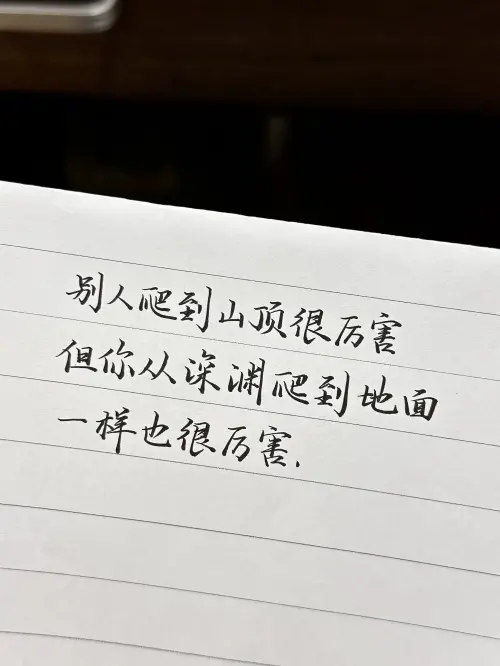 别人爬到山顶很厉害
但你从深渊爬到地面
一样也很厉害.